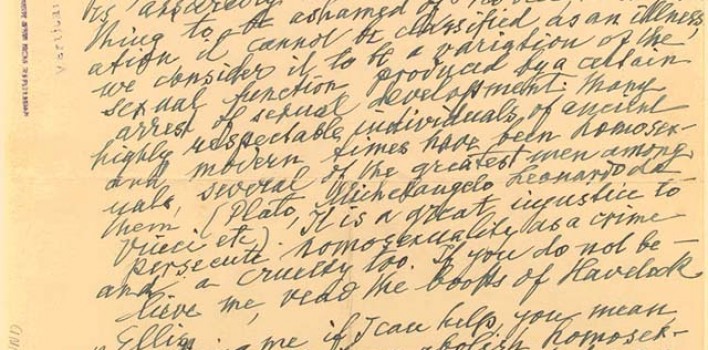 is assuredly
thing to be ashamed of no
ation it cannot be classified as an illness,
we consider it to be a variation of the
sexual function produced by a certain
arrest of sexual development. Many
highly respectable individuals of ancient
and modern times have been homosex-
uals, several of the greatest men among
them (Plato, Michelangelo Leonardo da
Vinci etc). It is a great injustice to
persecute homosexuality as a crime
and a cruelty too. If you do not be-
lieve me, read the books of Havelock
Ellis.
me if I can help, you mean
abolish homosex-